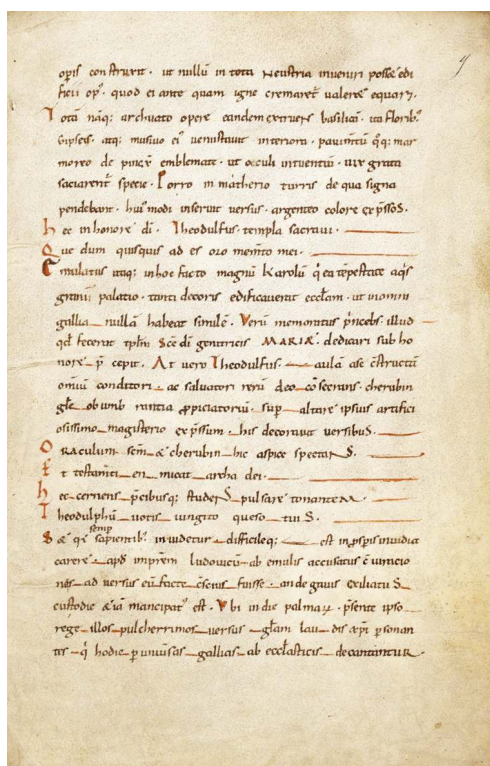 opis construxit · ut nullu in tota neustria inveniri posset edi
ficii op · quod ei ante quam igne cremaret valeret equari ·
Totā nāq; archuato opere eandem extruens basilicā · ita florib;
gipseis · atq; musivo ei venustavit interiora · pavimtū q;q; mar
moreo de pinxit emblemate · ut occuli intuentiū · vix grata
saciarent specie · Porro in matherio turris de qua signa
pendebant · hui modi inseruit versus · argenteo colore exp̄ssos ·
hec in honore dī · Theodulfus templa sacravi ·
Que dum quisquis ad es oro mem̄to mei ·
Emulatus itaq; in hoc facto magnū Karolū q ea tēpestate aq̄s
grani palatio · tanti decoris edificaverat eccl̄am · ut in omni
gallia nullā habeat similē · Verū memoratus p̄nceps illud
qd fecerat tplm Scē dī genitricis MARIAE dedicari sub ho
nore p cepit · At vero Theodulfus aulā ase cstructā
omiū conditori ac salvatori rerū deo cōsecrans · cherubin
gle obumbrantia ppiciatoriū · sup altare ipsius artifici
osissimo magisterio exp̄ssum · his decoravit versibus ·
Oraculum scm & cherubin hic aspice spectans ·
Et testam̄ti en micat archa dei ·
hec cernens p̄cibusq; studens pulsare tonantem ·
Theodulphū votis iungito queso tuis ·
Sȩ qr semp sapientib; invidetur difficileq; est inpspis invidia
carere apd impr̄em ludovicū ab emulis accusatus ē iunicio
nes ad versus eū facte csens fuisse · andegavis exiliatus
custodie &iā mancipat est · Ubi in die palmar · psente ipso
rege illos pulcherrimos versus glam laudis xpi psonan
tis q hodie p univsas gallias ab eccl̄asticis decantantur ·